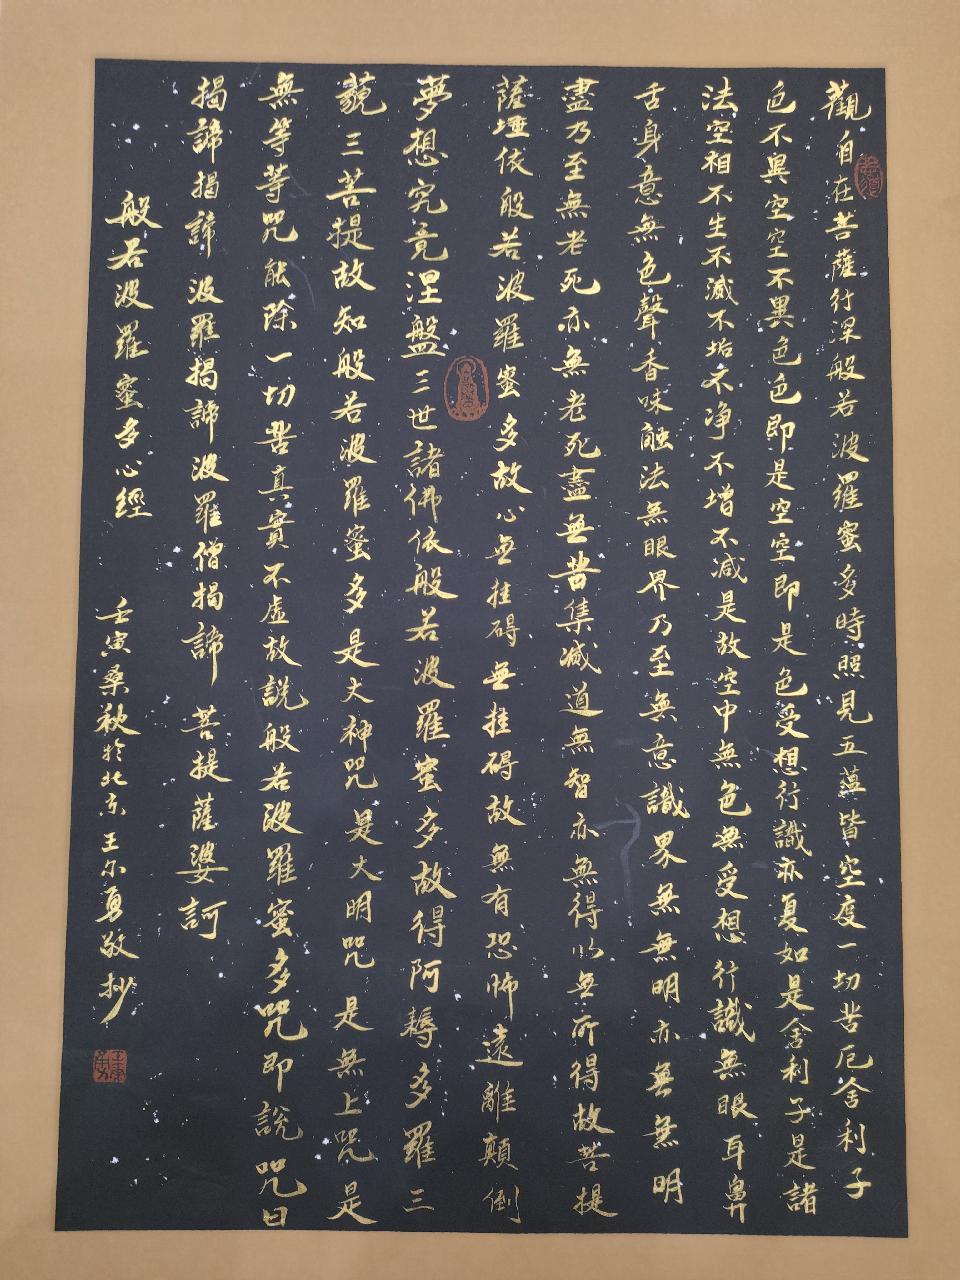 觀自在菩薩行深般若波羅蜜多時照見五蘊皆空度一切苦厄舍利子
色不異空空不異色色即是空空即是色受想行識亦复如是舍利子是諸
法空相不生不滅不垢不净不增不减是故空中無色無受想行識無眼耳鼻
舌身意無色聲香味触法無眼界乃至無意識界無無明亦無無明
盡乃至無老死亦無老死盡無苦集滅道無智亦無得以無所得故菩提
薩埵依般若波羅蜜多故心無挂碍無挂碍故無有恐怖遠離顛倒
夢想究竟涅盤三世諸佛依般若波羅蜜多故得阿耨多羅三
藐三菩提故知般若波羅蜜多是大神咒是大明咒是無上咒是
無等等咒能除一切苦真實不虛故説般若波羅蜜多咒即說咒曰
揭諦揭諦波羅揭諦波羅僧揭諦 菩提薩婆訶
般若波羅蜜多心經 壬寅桑秋於北京王尔勇敬抄